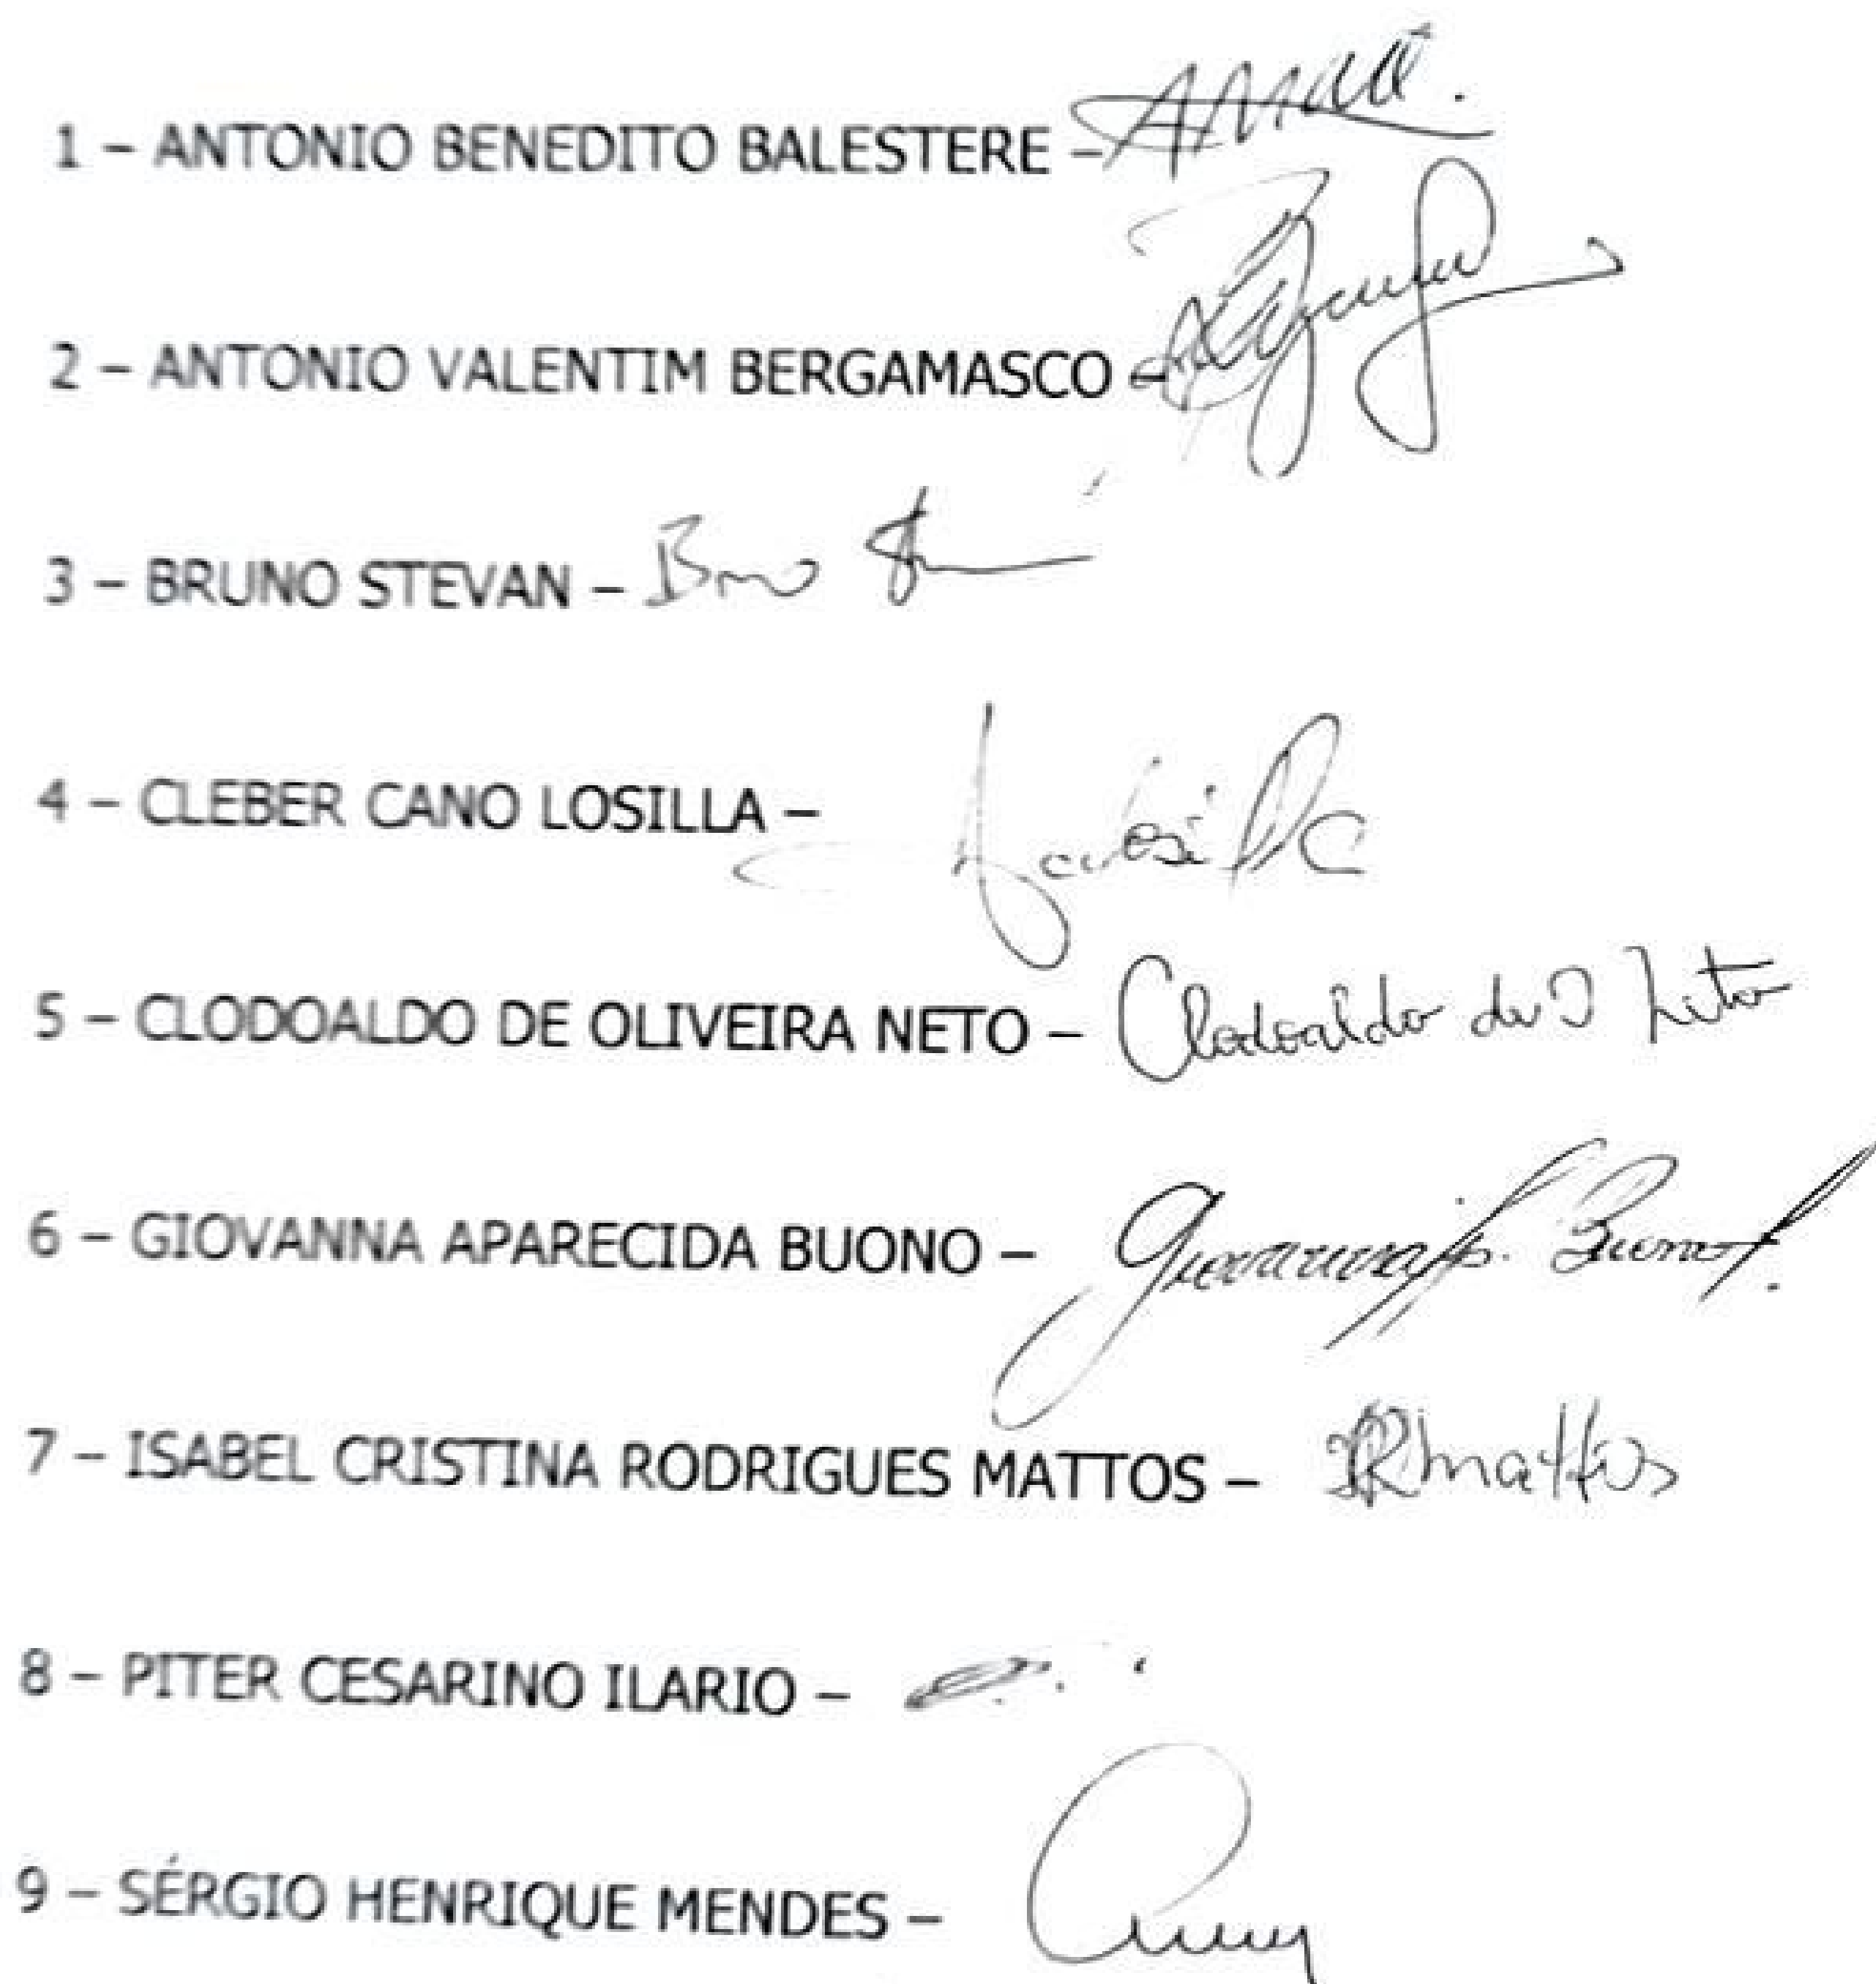 1 – ANTONIO BENEDITO BALESTERE –
2 – ANTONIO VALENTIM BERGAMASCO –
3 – BRUNO STEVAN –
4 – CLEBER CANO LOSILLA –
5 – CLODOALDO DE OLIVEIRA NETO – Clodoaldo de O Neto
6 – GIOVANNA APARECIDA BUONO – Giovanna Ap. Buono
7 – ISABEL CRISTINA RODRIGUES MATTOS – ICRMattos
8 – PITER CESARINO ILARIO –
9 – SÉRGIO HENRIQUE MENDES –